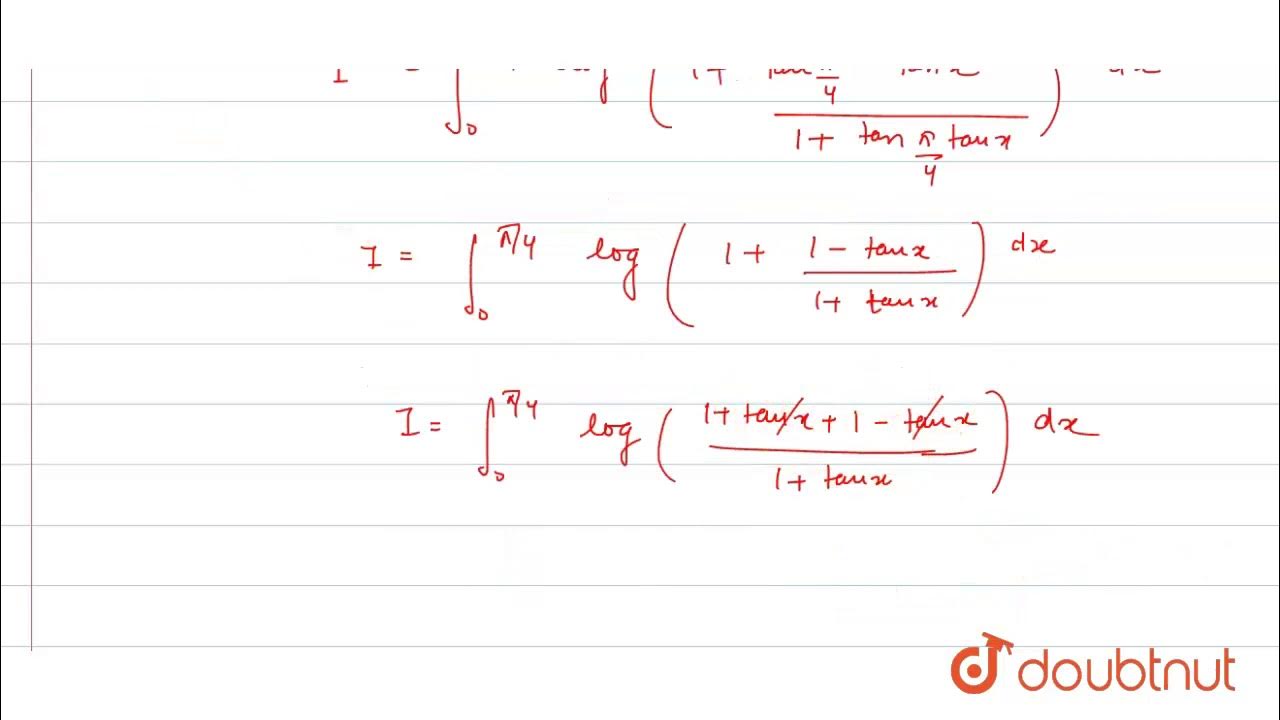 I = ∫₀ log ( 1 + tan π/4 tan x ) dx
1 + tan π/4 tan x
I = ∫₀^π/4 log ( 1 + (1 - tan x)/(1 + tan x) ) dx
I = ∫₀^π/4 log ( (1 + tan x + 1 - tan x)/(1 + tan x) ) dx
doubtnut